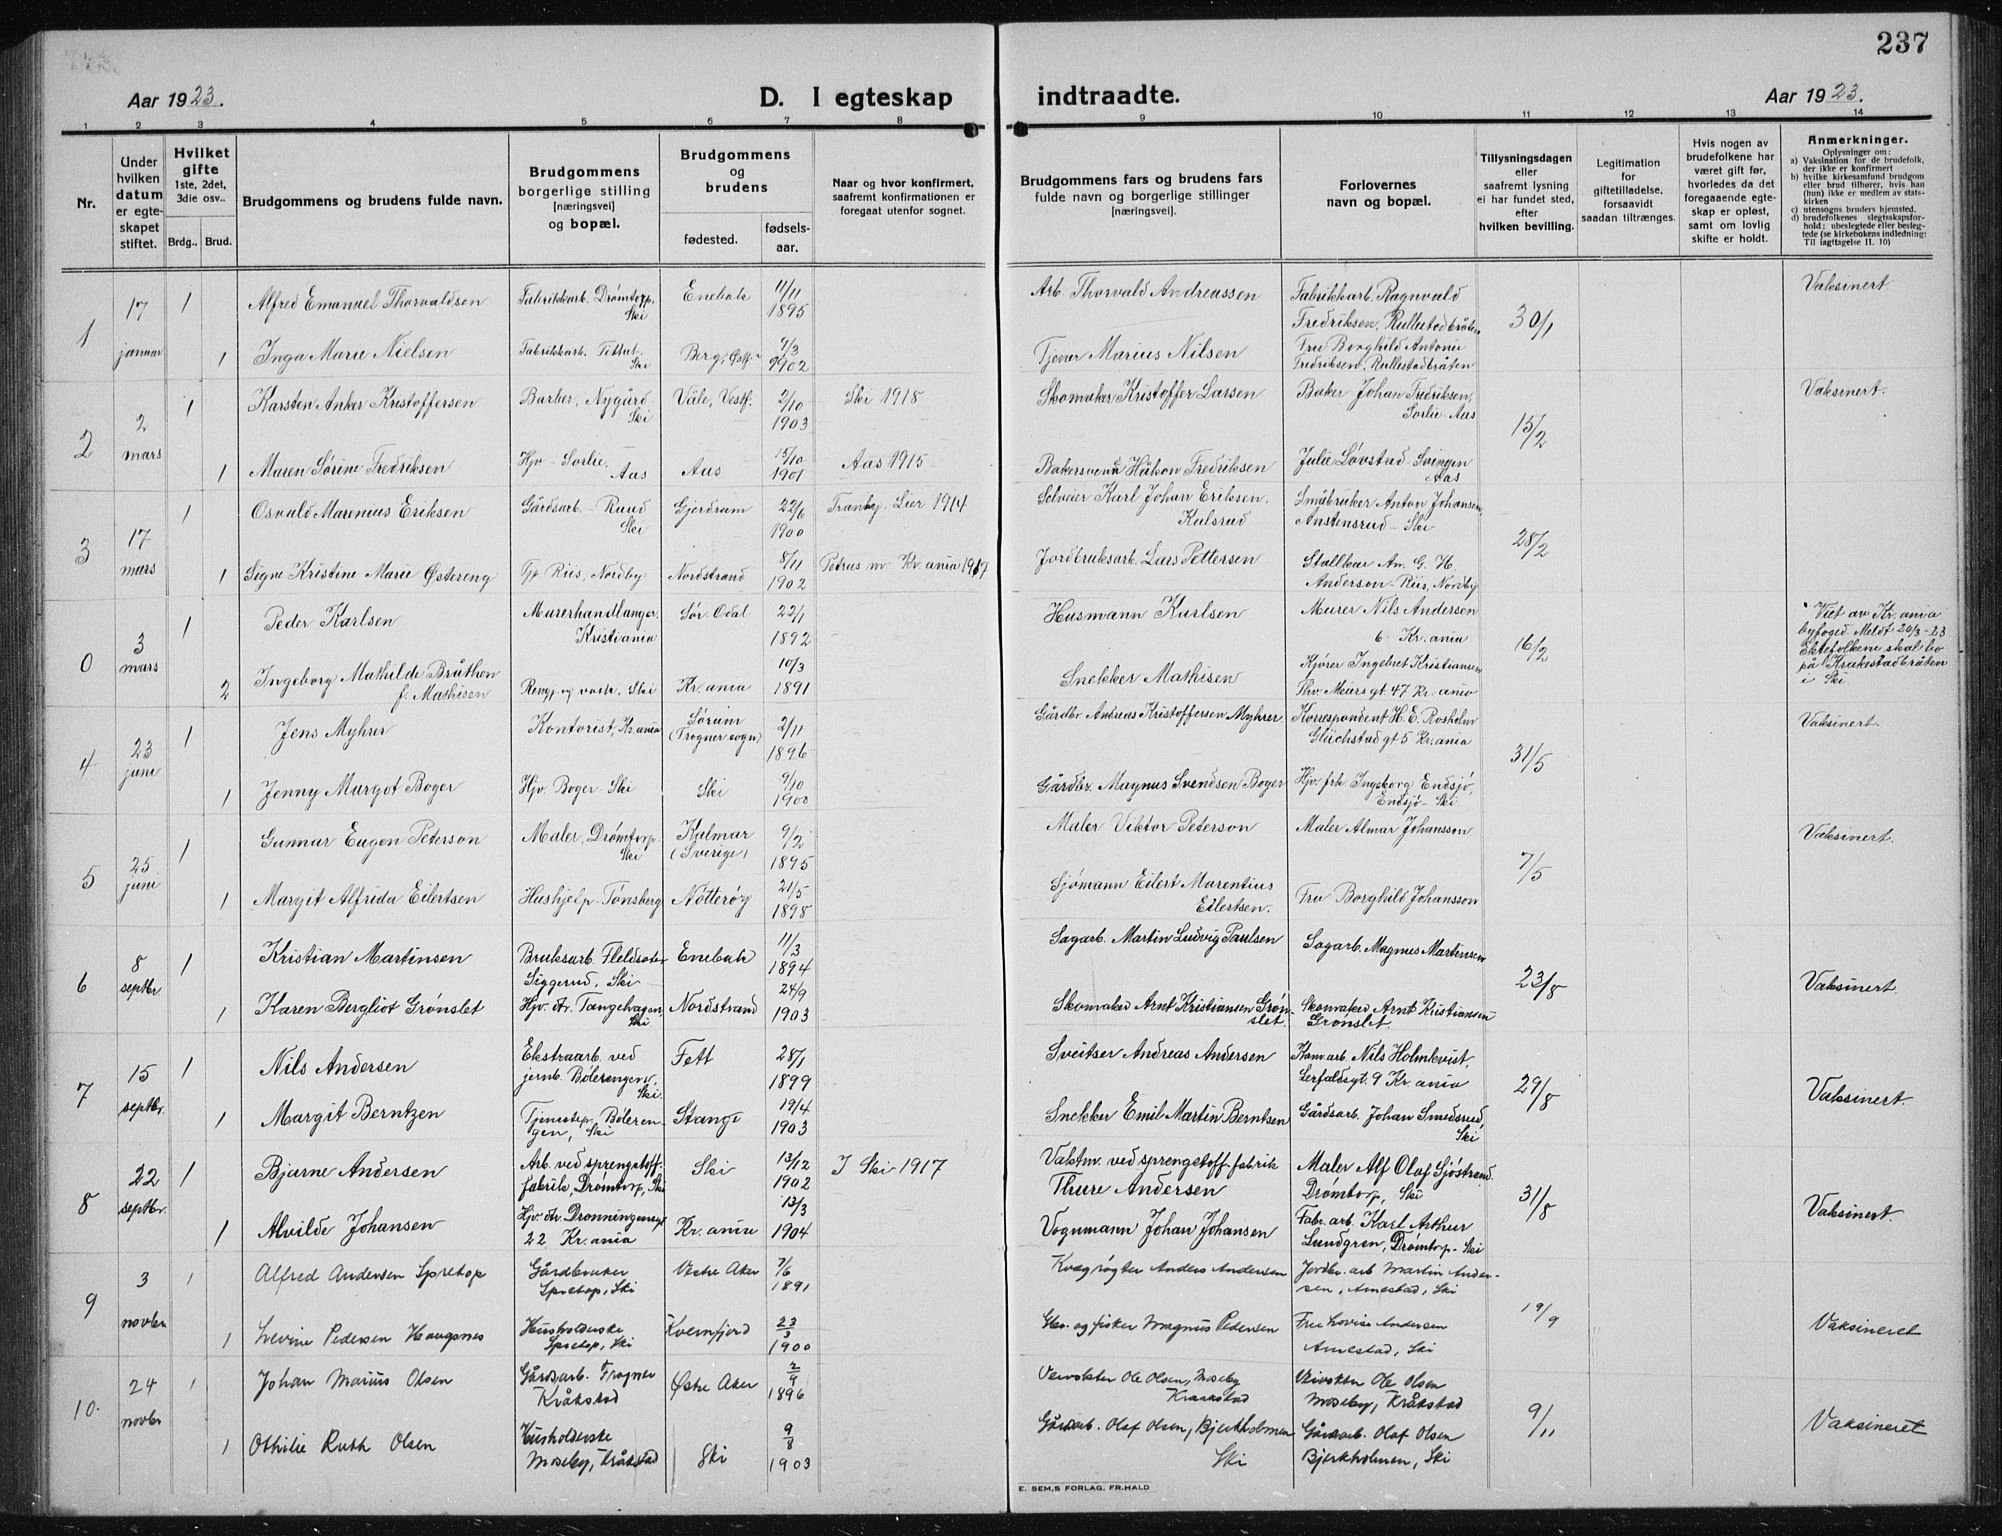 237
Aar 1923.
D. I egteskap indtraadte.
Aar 1923.
1 2 3 4 5 6 7 8 9 10 11 12 13 14
Nr.
Under hvilken datum er egteskapet stiftet.
Hvilket gifte 1ste, 2det, 3die osv..
Brdg.. Brud.
Brudgommens og brudens fulde navn.
Brudgommens borgerlige stilling [næringsvei] og bopæl.
Brudgommens og brudens
fødested. fødselsaar.
Naar og hvor konfirmert, saafremt konfirmationen er foregaat utenfor sognet.
Brudgommens fars og brudens fars fulde navn og borgerlige stillinger [næringsvei]
Forlovernes navn og bopæl.
Tillysningsdagen eller saafremt lysning ei har fundet sted, efter hvilken bevilling.
Legitimation for giftetilladelse, forsaavidt saadan tiltrænges.
Hvis nogen av brudefolkene har været gift før, hvorledes da det foregaaende egteskap er opløst, samt om lovlig skifte er holdt.
Anmerkninger.
Oplysninger om:
a) Vaksination for de brudefolk, der ikke er konfirmert
b) hvilke kirkesamfund brudgom eller brud tilhører, hvis han (hun) ikke er medlem av statskirken
c) utensogns bruders hjemsted.
d) brudefolkenes slegtsskapsforhold; ubeslegtede eller beslegtede (se kirkebokens indledning: Til iagttagelse II. 10)
1 17 januar 1 Alfred Emanuel Thorvaldsen Fabrikkarb. Drømtorp, Ski Enebak 11/11 1895 Arb. Thorvald Andreassen Fabrikkarb. Ragnvald Fredriksen, Rullestadbråten 30/1 Vaksinert
1 Inga Marie Nielsen Fabrikkarb. Ski Berg, Østf. 9/3 1902 Tjener Marius Nilsen Fru Borghild Antonie Fredriksen, Rullestadbråten
2 2 mars 1 Karsten Anker Kristoffersen Barber, Nygård Ski Våle, Vestf. 2/10 1903 Ski 1918 Skomaker Kristoffer Larsen Baker Johan Fredriksen, Sorlie-Aas 15/2 Vaksinert.
1 Maren Sørine Fredriksen Hjv - Sorlie, Aas Aas 13/10 1901 Aas 1915 Bakersvend Håkon Fredriksen Julie Løvstad Svingen Aas
3 17 mars 1 Osvald Marenius Eriksen Gårdsarb. - Ruud Ski Gjerdrum 22/6 1900 Tranby. Lier 1914 Selveier Karl Johan Eriksen. Kulsrud Småbruker Anton Johansen, Austensrud - Ski 28/2
1 Signe Kristine Marie Østereng Tjp Riis, Nordby Nordstrand 8/11 1902 Petrus m. Kr.ania 1917 Jordbruksarb. Lars Pettersen Stallkar An. G. H. Anderson - Riis, Nordby
0 3 mars 1 Peder Karlsen Murerhandlanger, Kristiania Sør. Odal 22/1 1892 Husmann Karlsen Murer Nils Andersen 6. Kr.ania 16/2 Viet av Kr.ania byfoged. Meldt 20/3-23 Ektefolkene skal bo på Krakestadbråten i Ski
2 Ingeborg Mathilde Bråthen f. Mathisen Rengj. og vask, Ski Kr.ania 10/3 1891 Snekker Mathisen Kjører Ingebret Kristiansen Thv. Meiers gt 47 Kr.ania
4 23 juni 1 Jens Myhrer Kontorist, Kr.ania Sørum (Frogner sogn) 2/11 1896 Gårdbr. Andreas Kristoffersen Myhrer Korrespondent H. E. Rosholm Glückstad gt 5 Kr.ania 31/5 Vaksinert.
1 Jenny Margot Boger Hjv. Boger. Ski Ski 9/10 1900 Gårdbr. Magnus Svendsen Boger Hjv. frk Ingeborg Endsjø, Endsjø - Ski
5 25 juni 1 Gunnar Eugen Peterson Maler, Drømtorp Ski Kalmar (Sverige) 9/2 1895 Maler Viktor Peterson Maler Almar Johansson 7/5 Vaksinert.
1 Margit Alfrida Eilertsen Hushjelp - Tønsberg Nøtterøy 21/5 1898 Sjømann Eilert Marentius Eilertsen. Fru Borghild Johansson
6 8 septbr. 1 Kristian Martinsen Bruksarb. Siggerud, Ski Enebak 11/3 1894 Sagarb. Martin Ludvig Paulsen Sagarb. Magnus Martinsen 23/8 Vaksinert.
1 Karen Bergliot Grønslet Hjv. dtr. Tangehagen, Ski Nordstrand 24/9 1903 Skomaker Arnt Kristiansen Grønslet. Skomaker Arnt Kristiansen Grønslet.
7 15 septbr. 1 Nils Andersen Ekstraarb. ved jernb. Bølerengen, Ski. Fett 28/1 1899 Sveitser Andreas Andersen Kom arb. Nils Holmkvist, Lerfaldsgt. 9 Kr.ania 29/8 Vaksinert.
1 Margit Berntzen Tjenestep. Bølerengen, Ski Stange 19/4 1903 Snekker Emil Martin Berntsen Gårdsarb. Johan Smedsrud, Ski
8 22 septbr. 1 Bjarne Andersen Arb. ved sprengstoff-fabrik, Drømtorp, Ski Ski 13/12 1902 I Ski 1917 Vaktm. ved sprengstoff-fabrik Thure Andersen Maler Alf Olaf Sjøstrand Drømtorp, Ski 31/8 Vaksinert.
1 Alvilde Johansen Hjv. dtr. Dronningensgt 22 Kr.ania Kr.ania 13/3 1904 Vognmann Johan Johansen Fabr. arb. Karl Arthur Lundgren, Drømtorp - Ski
9 3 novbr 1 Alfred Andersen Spretop Gårdbruker Spretop, Ski Vestre Aker 7/6 1891 Kvægrøgter Anders Andersen Jordbr. arb Martin Andersen, Arnestad, Ski 19/9
1 Levine Pedersen Haugsnes Husholderske Spretop, Ski Kvernfjord 23/3 1900 Gbr. og fisker Magnus Pedersen Fru Lovise Andersen Arnestad, Ski Vaksineret
10. 24 novbr 1 Johan Marius Olsen Gårdsarb. Frogner Kråkstad Østre Aker 2/4 1896 Veivokter Ole Olsen, Moseby Kraakstad Veivokter Ole Olsen Moseby, Kråkstad 9/11
1 Othilie Ruth Olsen Husholderske Moseby, Kråkstad Ski 9/8 1903 Gårdsarb. Olaf Olsen, Bjerkholmen Ski Gårdsarb. Olaf Olsen Bjerkholmen, Ski Vaksineret
E. SEM,S FORLAG, FR.HALD